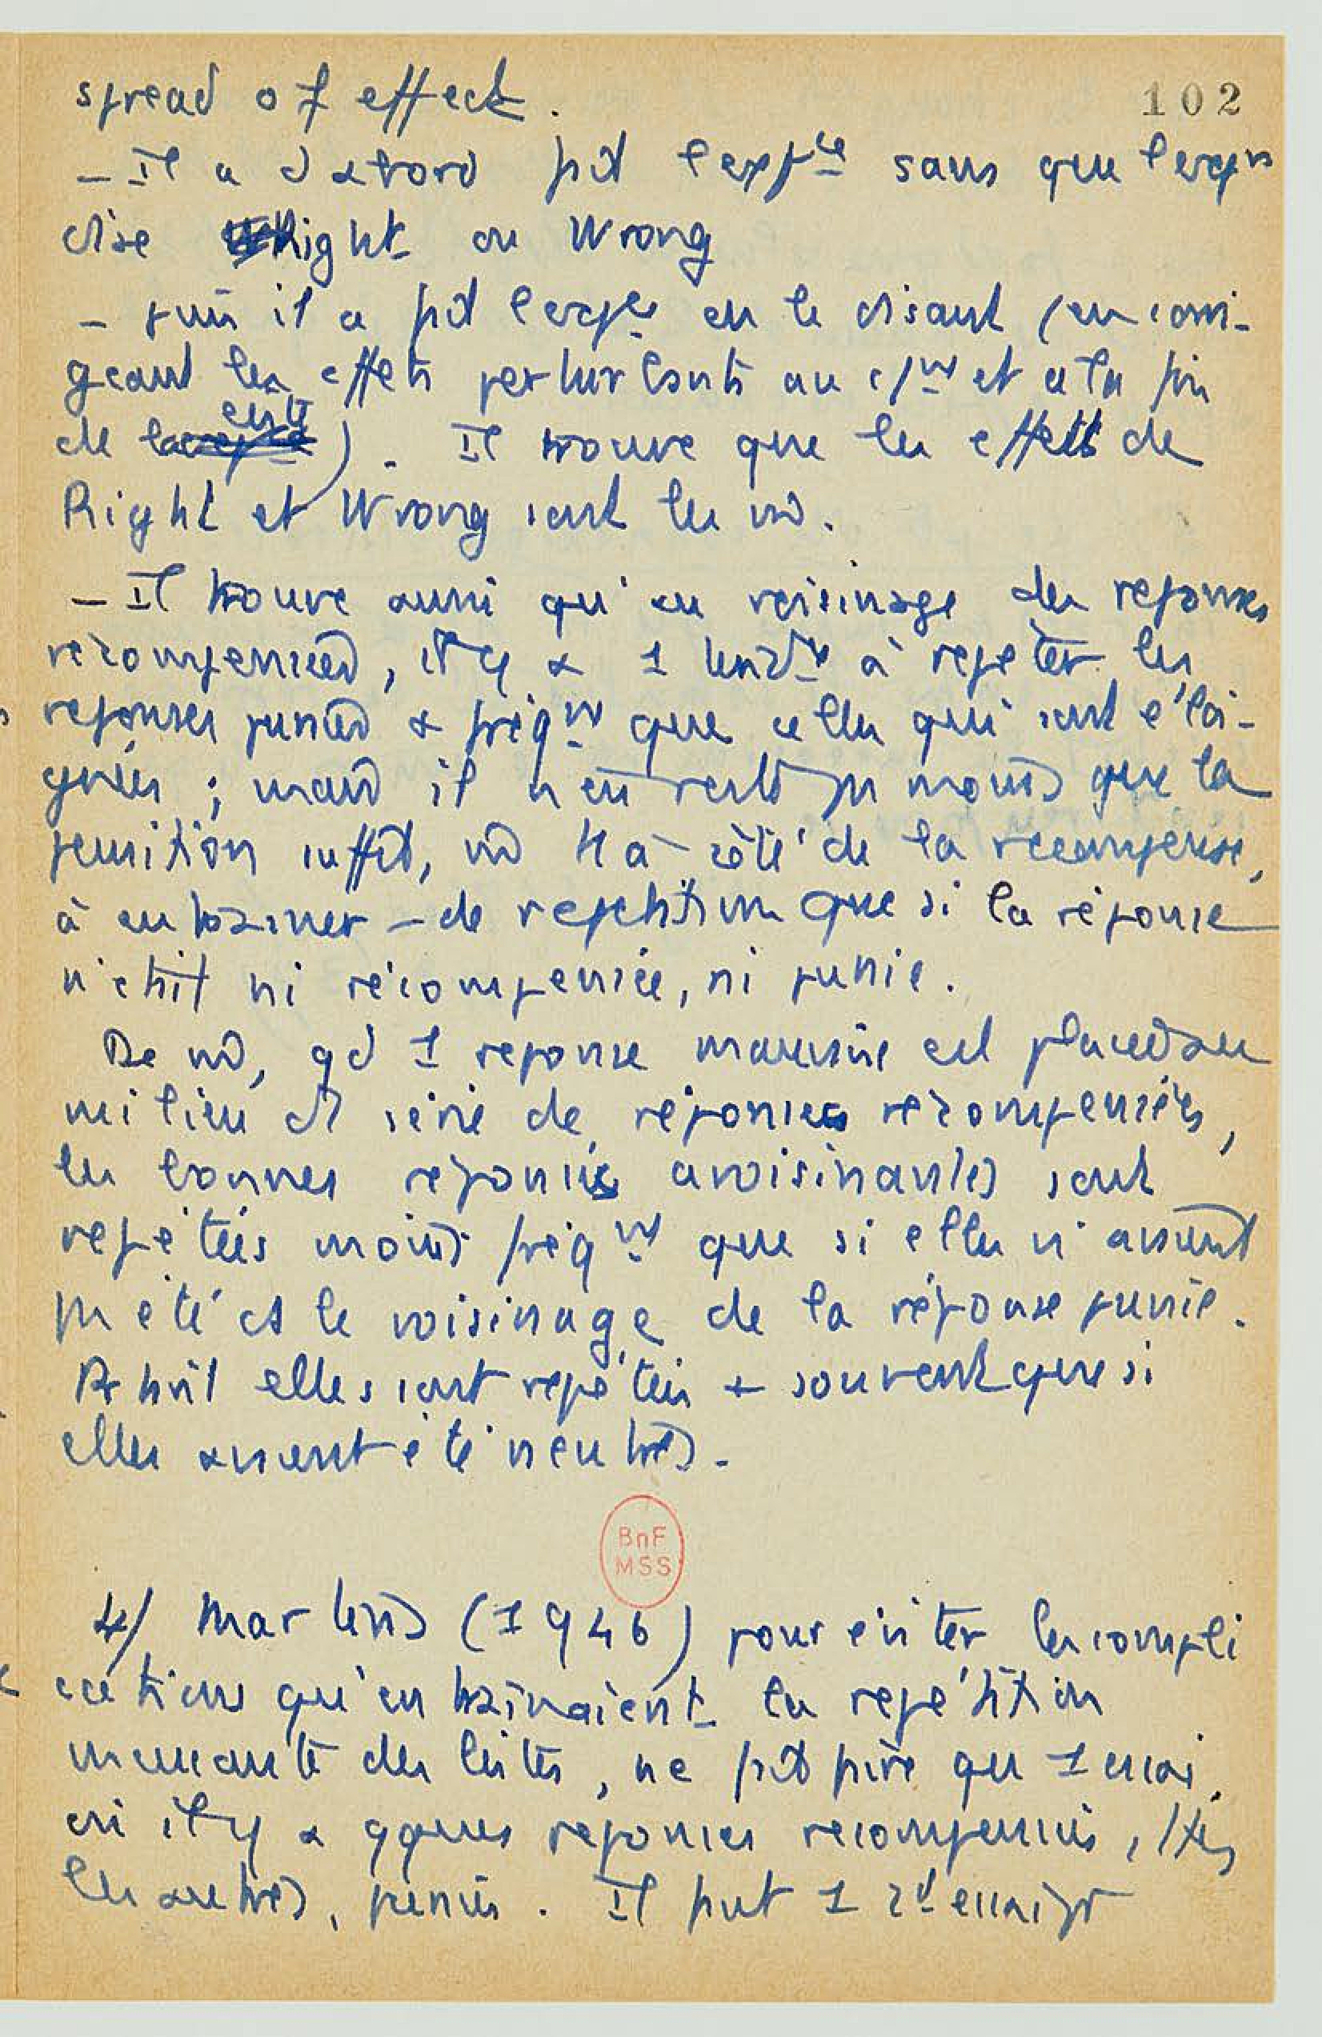 102
spread of effect.
– Il a d'abord fait l'exp^ce sans que l'exp^r
dise Right ou Wrong
– puis il a fait l'exp^ce en le disant (en corri-
geant les effets perturbants au c/^nt et a la fin
de la liste). Il trouve que les effets de
Right et Wrong sont les m̂.
– Il trouve aussi qu'au voisinage des reponses
récompensées, il y a 1 tend^ce à repeter les
reponses punies + freq^nt que celles qui sont éloi-
gnées ; mais il n'en reste pas moins que la
punition suffit, m̂ tt à côté de la recompense,
à entrainer – de repetition que si la réponse
n'était ni récompensée, ni punie.
De m̂, qd 1 reponse mauvaise est placée au
milieu d'1 série de réponses récompensées,
les bonnes réponses avoisinantes sont
repétées moins freq^nt que si elles n'avaient
pas été ds le voisinage de la réponse punie.
elles sont repétées + souvent que si
elles avaient été neutres.
BnF
MSS
4/ Martens (1946) pour éviter les compli
cations qu'entrainaient la repétition
des listes, ne fait faire que 1 essai,
où il y a qques reponses recompensées, ttes
les autres, punies. Il fait 1 2^d essai pr